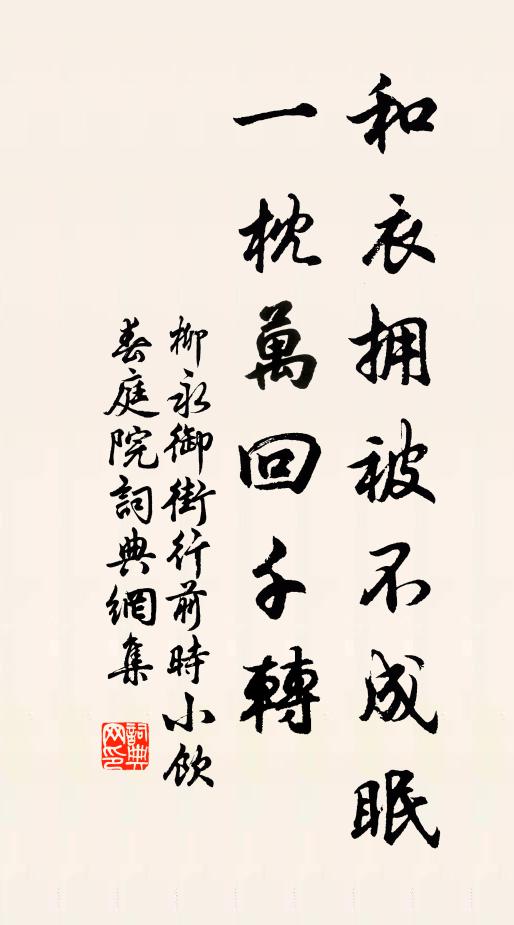 和衣拥被不成眠
一枕萬回千轉
柳永御街行前時小飲
春庭院詞典網集
詞典网印